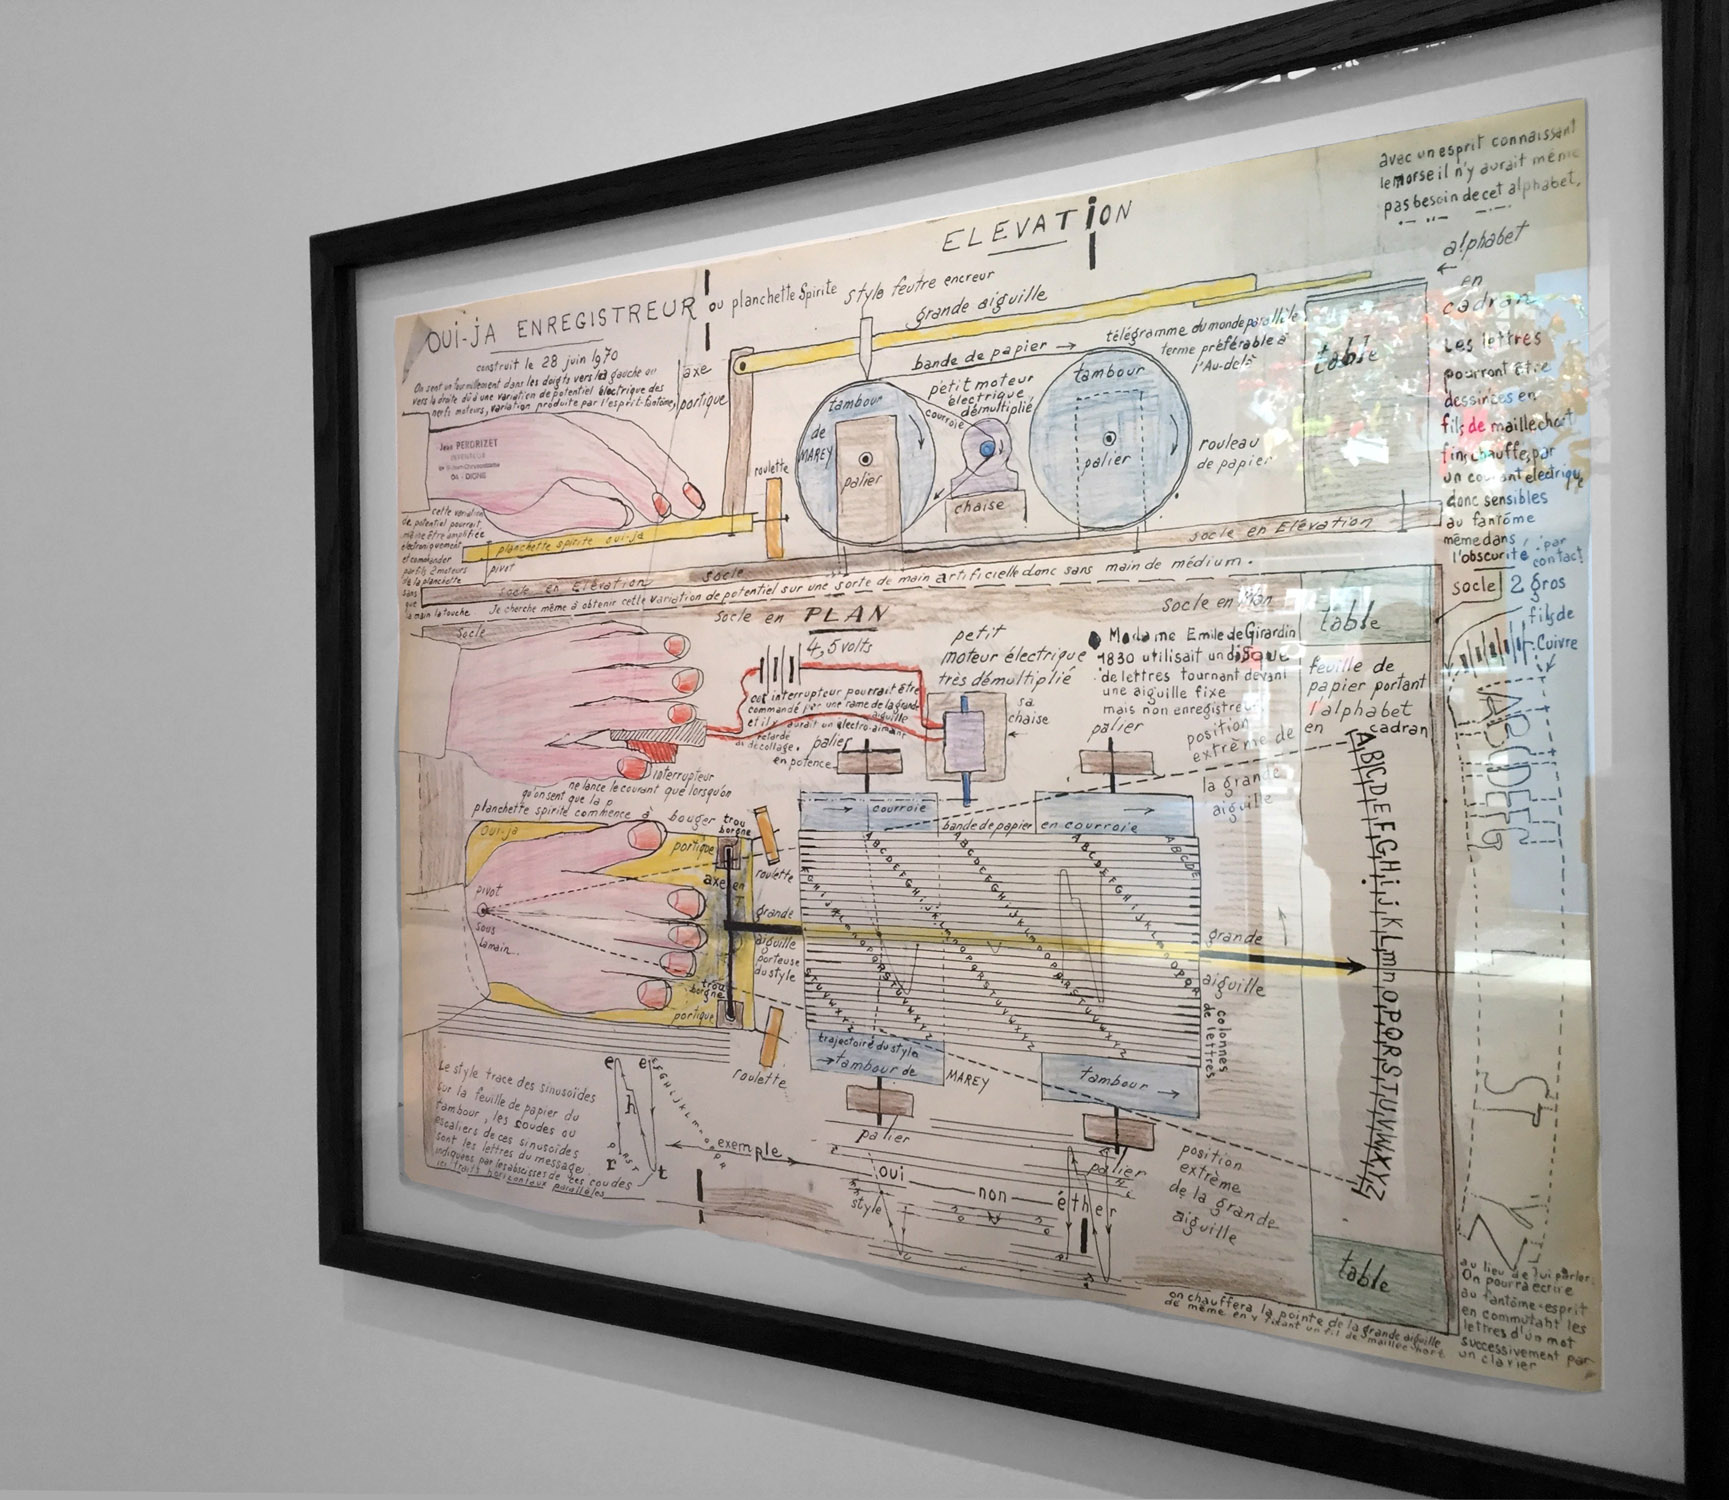 ELEVATION
avec un esprit connaissant
le morse il n'y aurait même
pas besoin de cet alphabet,
OUI-JA ENREGISTREUR ou planchette Spirite
style feutre encreur
grande aiguille
construit le 28 juin 1970
On sent un fourmillement dans les doigts vers la gauche ou
vers la droite dû à une variation de potentiel électrique des
nerfs moteurs, variation produite par l'esprit-fantôme,
axe
portique
bande de papier →
télégramme du monde parallèle
terme préférable à
l'Au-delà
alphabet
en
cadran
Les lettres
pourront être
dessinées en
fils de maillechort
fins chauffés par
un courant électrique
donc sensibles
au fantôme
même dans
l'obscurité
par
contact!
Jean PERDRIZET
INVENTEUR
04 - DIGNE
tambour
de
MAREY
palier
petit moteur
électrique
démultiplié
courroie
chaise
tambour
palier
rouleau
de papier
table
roulette
cette variation
de potentiel pourrait
même être amplifiée
électroniquement
et commander
par fils 2 moteurs
de la planchette
sans
que
la main la touche.
planchette spirite oui-ja
pivot
socle en Elévation
socle
socle en Elévation
Je cherche même à obtenir cette variation de potentiel sur une sorte de main artificielle donc sans main de médium.
Socle en PLAN
Socle en Plan
socle
table
socle
2 gros
fils de
Cuivre
4,5 volts
petit
moteur électrique
très démultiplié
Madame Emile de Girardin
1830 utilisait un disque
de lettres tournant devant
une aiguille fixe
mais non enregistreur
feuille de
papier portant
l'alphabet
en cadran
cet interrupteur pourrait être
commandé par une rame de la grande
aiguille
et il y aurait un électro-aimant
retardé
au décollage.
sa
chaise
palier
en potence
palier
position
extrême de
la grande
aiguille
interrupteur
ne lance le courant que lorsqu'on
qu'on sent que la p
planchette spirite commence à bouger
Oui-ja
trou
borgne
portique
roulette
axe en
pivot
sous
la main..
courroie
bande de papier en courroie
grande
aiguille
porteuse
du style
grande
aiguille
trou
borgne
portique
colonnes
de lettres
ABCDEFGHijKLmnOPQRSTUVWXYZ
ABCDEFG
trajectoire du style
tambour de MAREY
tambour
roulette
palier
palier
Le style trace des sinusoïdes
sur la feuille de papier du
tambour, les coudes ou
escaliers de ces sinusoïdes
sont les lettres du message
indiquées par les abscisses de ces coudes
ici traits horizontaux parallèles
e e
h
r t
exemple
oui
non
éther
style
position
extrême
de la grande
aiguille
table
on chauffera la pointe de la grande aiguille
de même en y fixant un fil de maillechort
au lieu de lui parler
On pourra écrire
au fantôme-esprit
en commutant les
lettres d'un mot
successivement par
un clavier